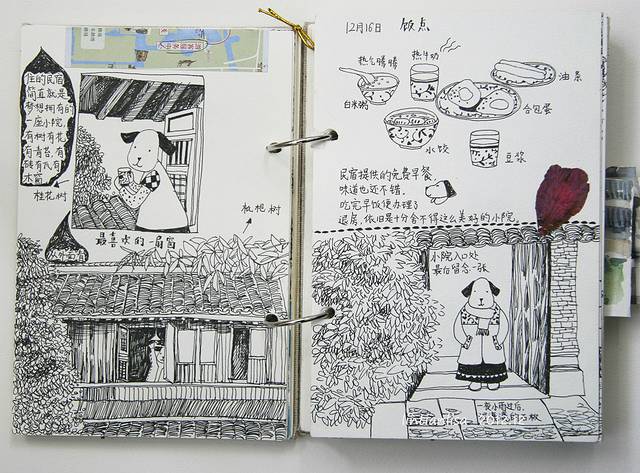 住的民宿
简直就是
梦想拥有的
一座小院,
有树有花,
有青苔,有
砖有瓦有
木窗
桂花树
最喜欢的一扇窗
枇杷树
12月16日 饭点
热气腾腾
热牛奶
油条
白米粥
荷包蛋
水饺
豆浆
民宿提供的免费早餐
味道也还不错.
吃完早饭便办理了
退房,依旧是十分舍不得这么美好的小院.
小院入口处
最后留念一张